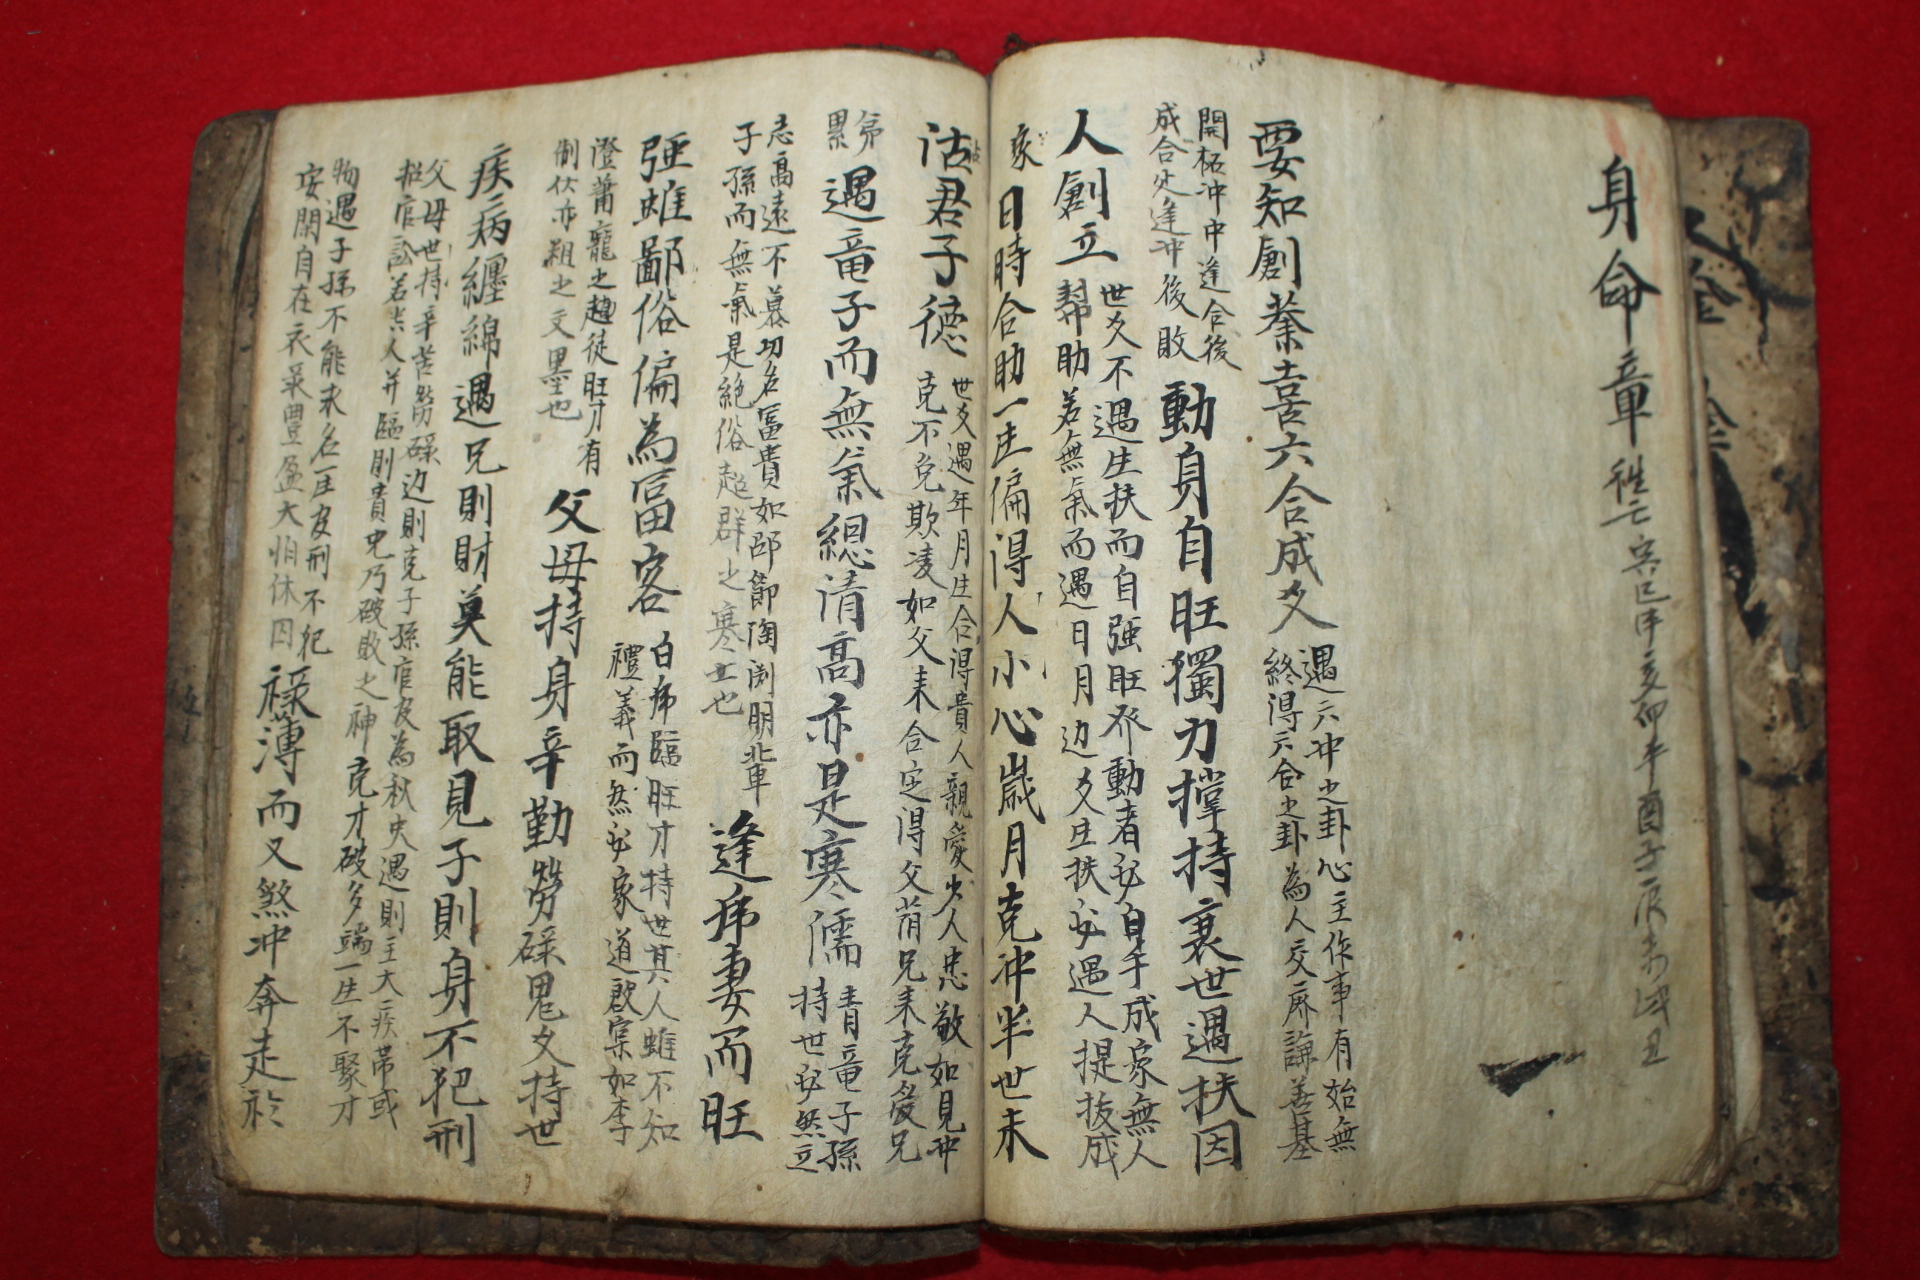 身命章
要知創業喜六合成爻
遇六冲之卦心主作事有始無
終得六合之卦為人交際謙善基
開拓冲中逢合後
成合处逢冲後敗
動身自旺獨力撑持衰世遇扶因
人創立
世爻不遇生扶而自强旺發動者必自手成家無人
幇助若無氣而遇日月边爻生扶必遇人提拔成
家
日時合助一生偏得人小心歲月克冲半世未
沾君子德
世爻遇年月生合得貴人親愛少人忠敬如見冲
克不免欺凌如父来合定得父萠兄来克爱兄
累
遇竜子而無氣総清高亦是寒儒
青竜子孫
持世必然立
志高遠不慕功名冨貴如邵節陶渕明輩
子孫而無氣是絶俗超群之寒士也
逢虎妻而旺
强雖鄙俗偏為冨客
白虎臨旺才持世其人雖不知
禮義而然必家道殷富如李
澄蕭寵之趙徒旺才有
制伏亦粗之文墨也
父母持身辛勤勞碌鬼爻持世
疾病纏綿遇兄則財莫能取見子則身不犯刑
父母世持辛苦勞碌边則克子孫官皮為秋失遇則主大疾帯或
招官訟若吉人并臨則貴兄乃破敗之神克才破多端一生不聚才
物遇子孫不能求名一生皮刑不犯
安閑自在衣录豊盈大怕休囚
祿薄而又煞冲奔走於